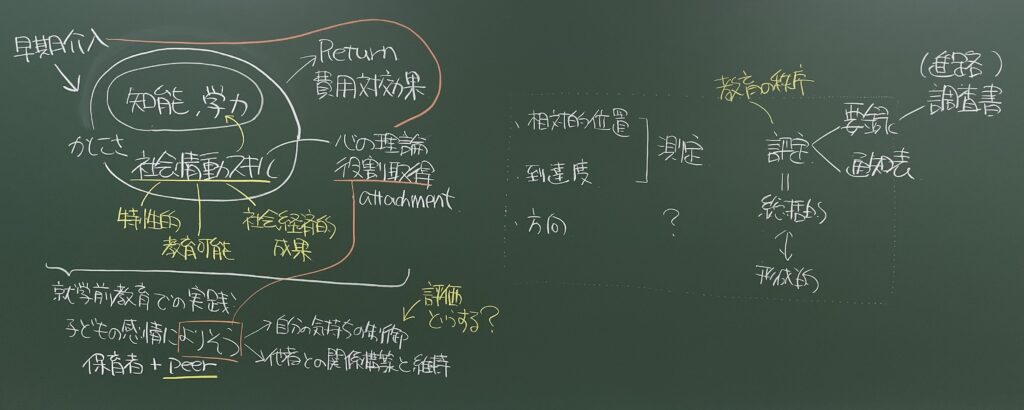 早期介入
知能、学力
かしこさ
社会情動スキル
特性的
教育可能
社会経済的
成果
Return
費用対効果
心の理論
役割取得
attachment
就学前教育での実践
子どもの感情によりそう
保育者 + peer
自分の気持ちの制御
他者との関係構築と維持
評価
どうする？
・相対的位置
・到達度
・方向
測定
？
教育の秩序
評定
総括的
形成的
要録
通知表
(進路)
調査書